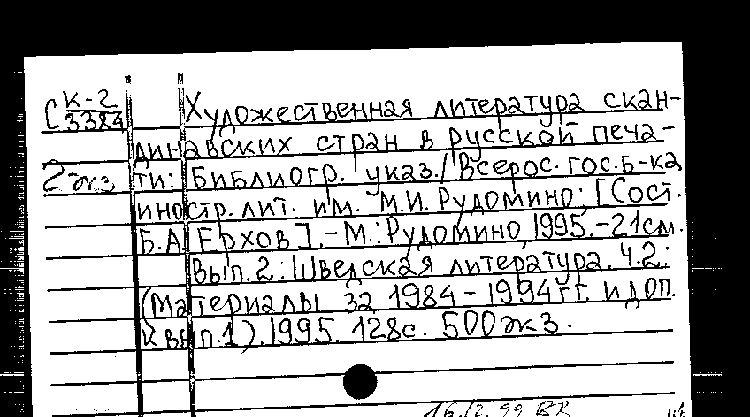 С К-2
3384
2 экз
Художественная литература скан-
динавских стран в русской печа-
ти: Библиогр. указ./Всерос. гос. б-ка
иностр. лит. им. М.И. Рудомино; [Сост.
Б.А. Ерхов]. - М.: Рудомино, 1995. - 21см.
Вып. 2: Шведская литература. Ч.2:
(Материалы за 1984 - 1994 гг. и доп.
к вып. 1). 1995. 128с. 500 экз.